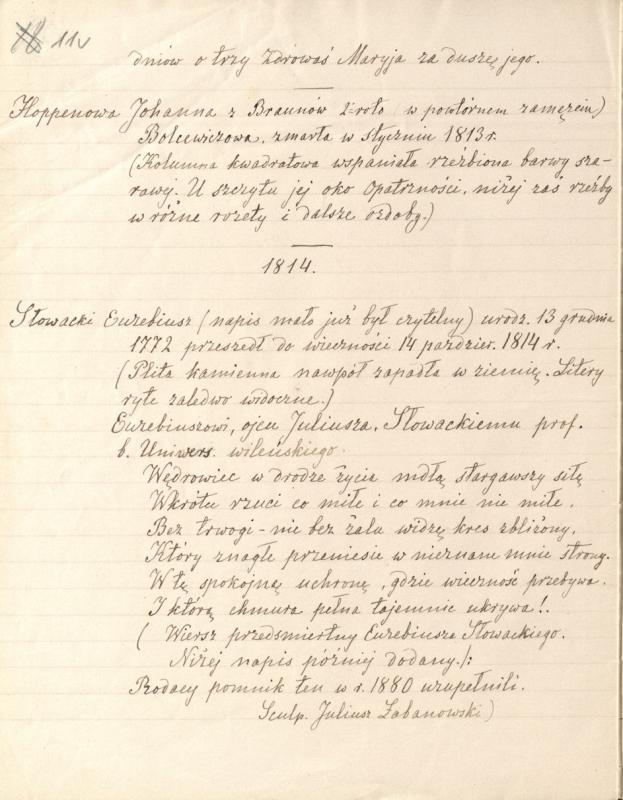 11v
dniów o trzy Zdrowaś Maryja za duszę jego.
Hoppenowa Johanna z Braunów 2º roto (w powtórnem zamęzciu)
Bolcewiczowa, zmarła w styczniu 1813 r.
(Kolumna kwadratowa wspaniała rzeźbiona barwy sza-
rawej. U szczytu jej oko Opatrzności, niżej zaś rzeźby
w różne rozety i dalsze ozdoby.)
1814.
Słowacki Euzebiusz (napis mało już był czytelny) urodz. 13 grudnia
1772 przeszedł do wieczności 14 paździer. 1814 r.
(Plita kamienna nawpół zapadła w ziemię. Litery
ryte zaledwo widoczne.)
Euzebiuszowi, ojcu Juliusza, Słowackiemu prof.
b. Uniwers. wileńskiego.
Wędrowiec w drodze życia mdłą stargawszy siłę
Wkrótce rzuci co miłe i co mnie nie miłe.
Bez trwogi - nie bez żalu widzę kres zbliżony,
Który znagle przeniesie w nieznane mnie strony.
W tę spokojną uchronę, gdzie wieczność przebywa.
I którą chmura pełna tajemnic ukrywa!.
( Wiersz przedśmiertny Euzebiusza Słowackiego.
Niżej napis później dodany.):
Rodacy pomnik ten w r. 1880 uzupełnili.
Sculp. Juliusz Żabanowski)